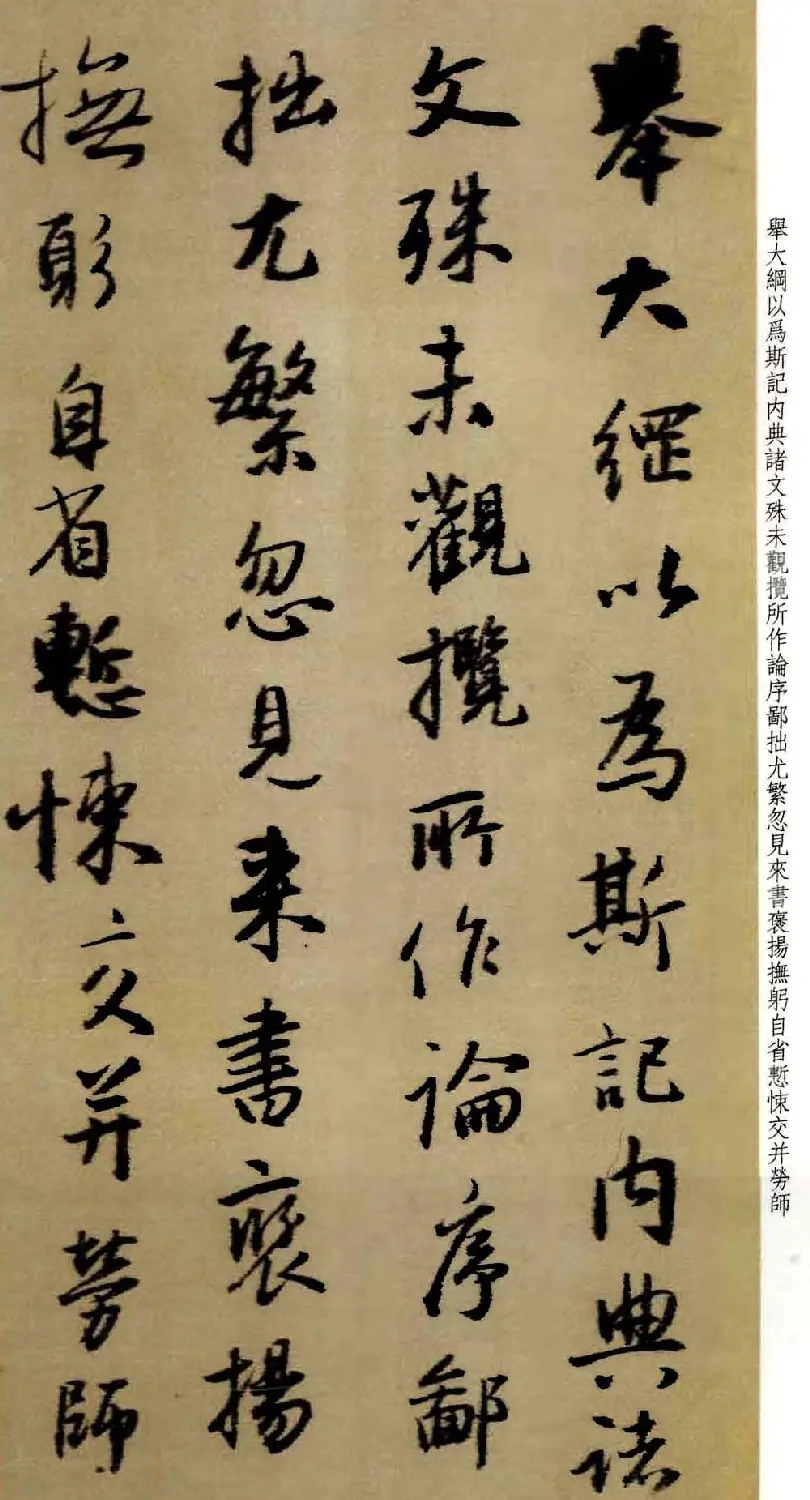 舉大綱以爲斯記內典諸文殊未觀攬所作論序鄙拙尤繁忽見來書褒揚撫躬自省慙悚交并勞師
舉大綱以為斯記內典諸
文殊未觀攬所作論序鄙
拙尤繁忽見来書褒揚
撫躬自省慙悚交并勞師